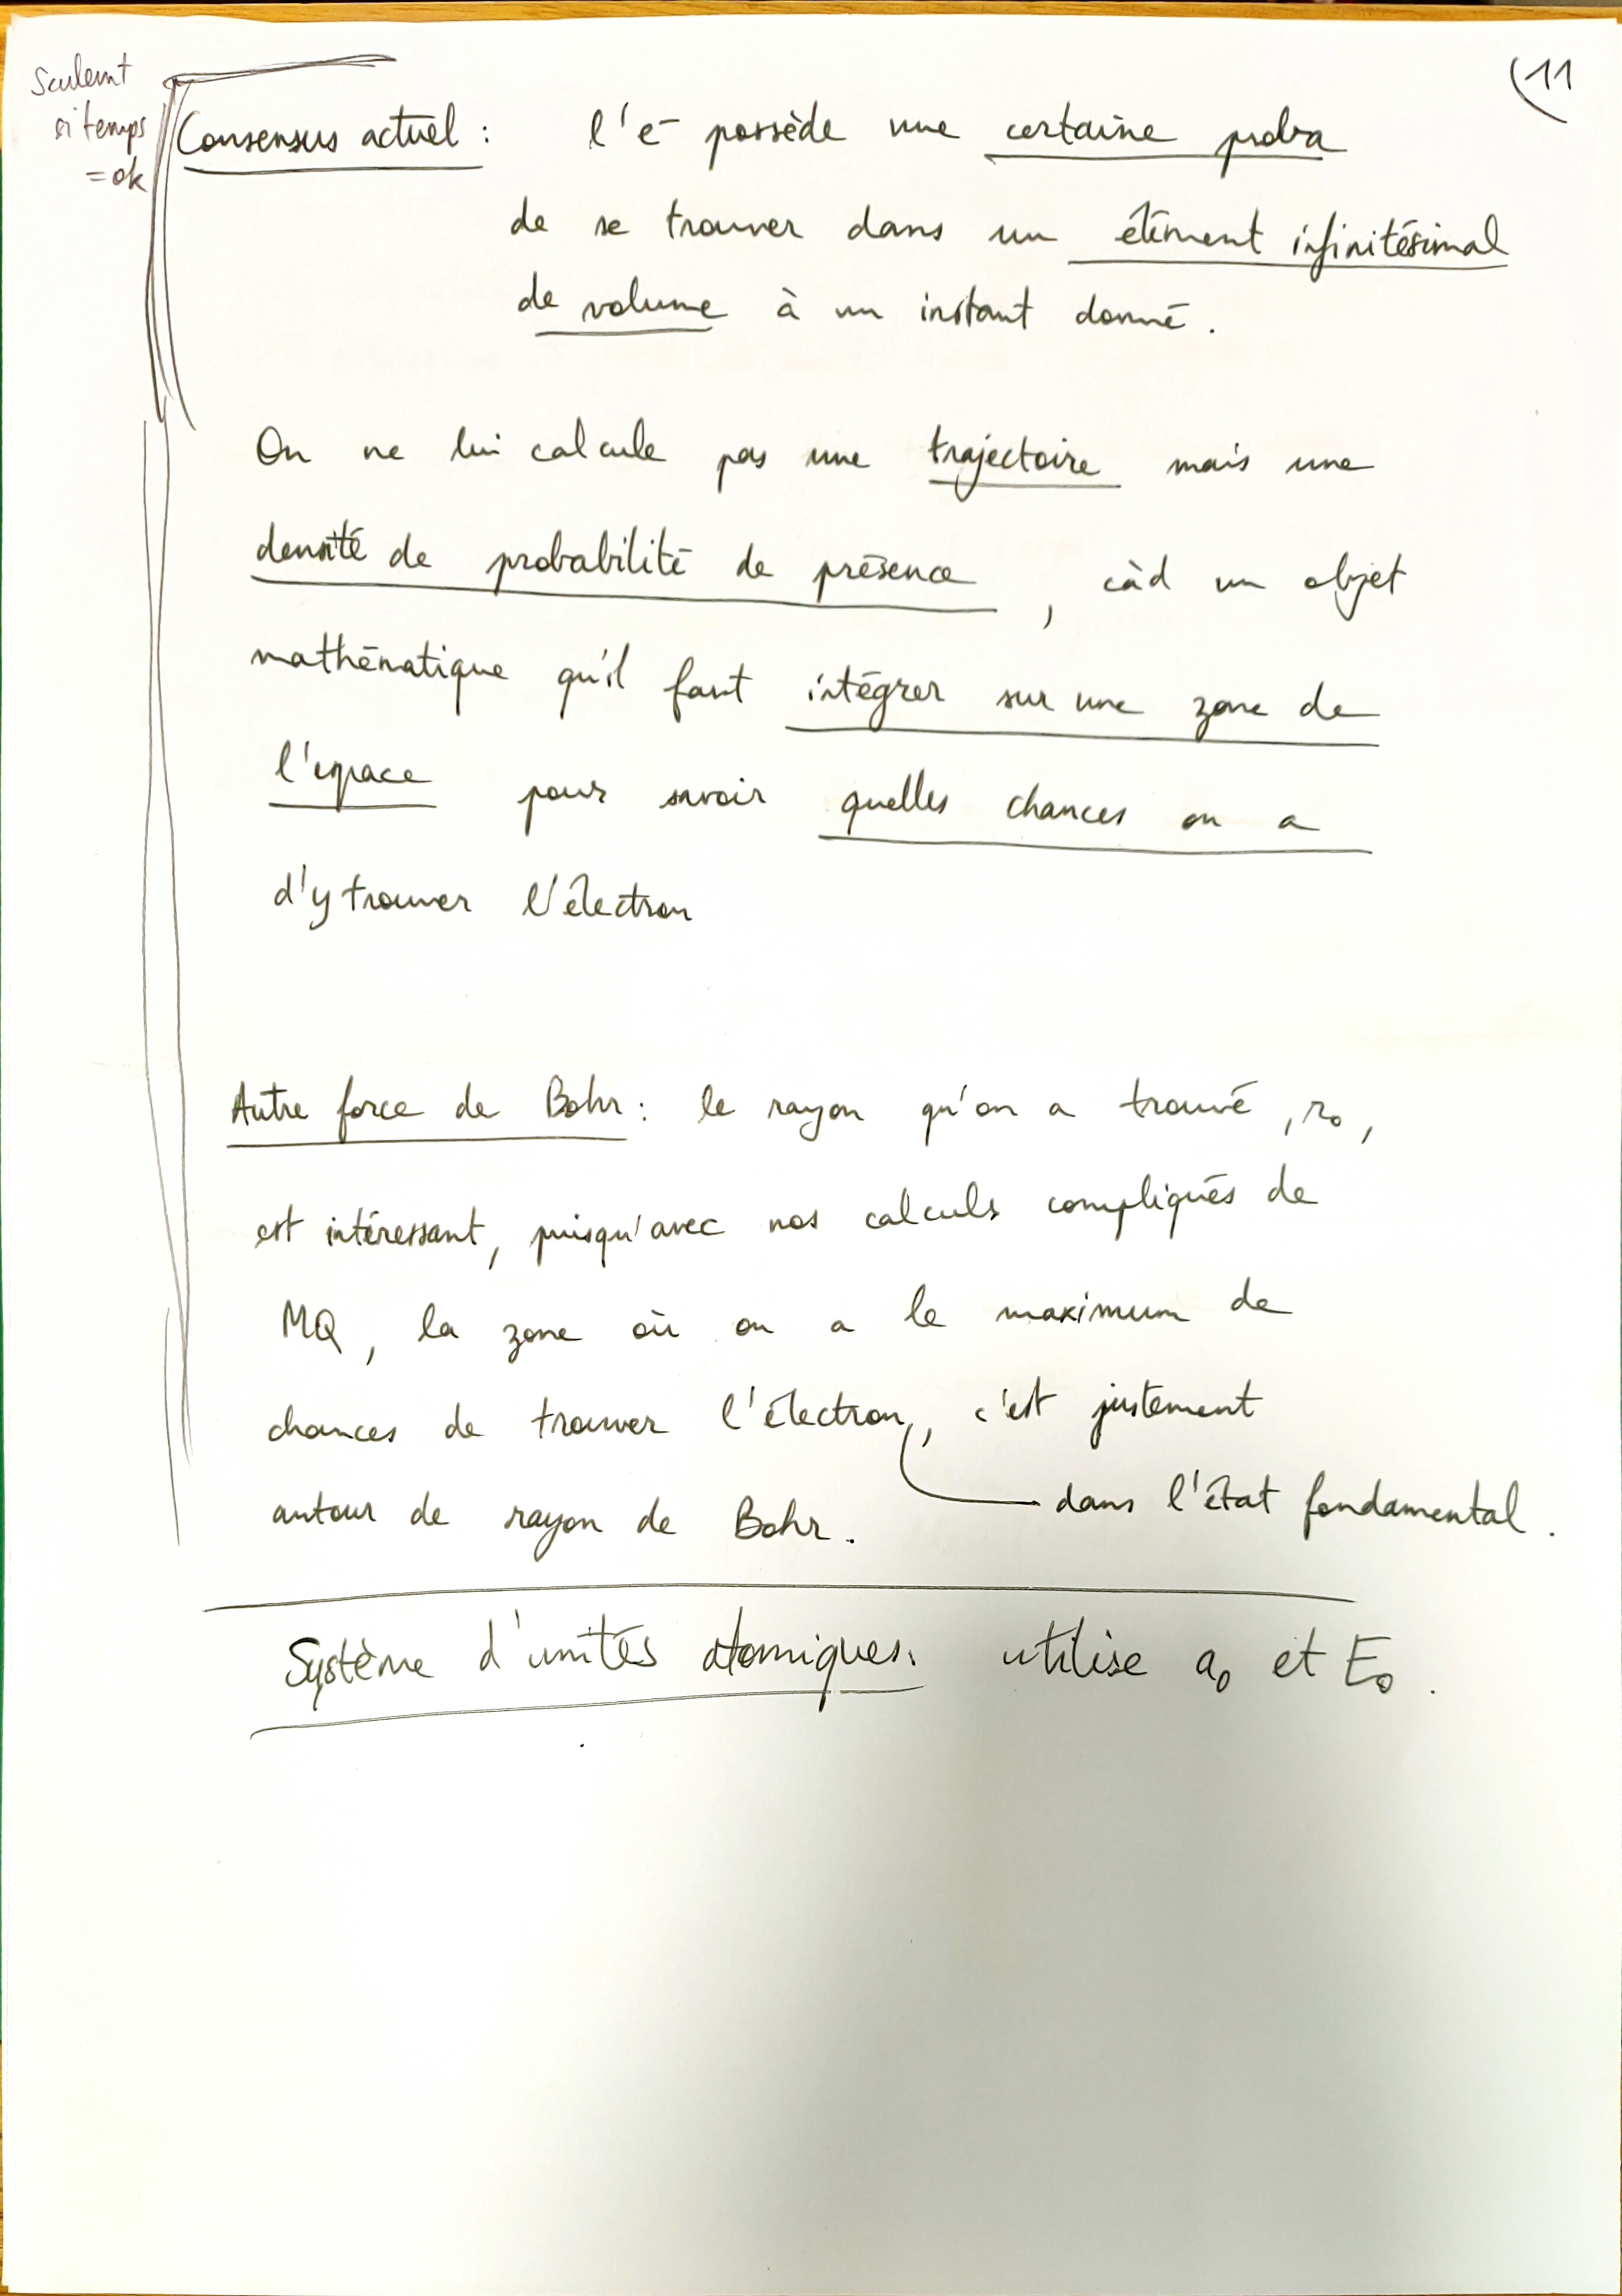 11
Seulemt
si temps
= ok
Consensus actuel : l'e⁻ possède une certaine proba
de se trouver dans un élément infinitésimal
de volume à un instant donné.
On ne lui calcule pas une trajectoire mais une
densité de probabilité de présence, càd un objet
mathématique qu'il faut intégrer sur une zone de
l'espace pour savoir quelles chances on a
d'y trouver l'électron
Autre force de Bohr : le rayon qu'on a trouvé, r₀,
est intéressant, puisqu'avec nos calculs compliqués de
MQ, la zone où on a le maximum de
chances de trouver l'électron, c'est justement
dans l'état fondamental.
autour de rayon de Bohr.
Système d'unités atomiques: utilise a₀ et E₀.